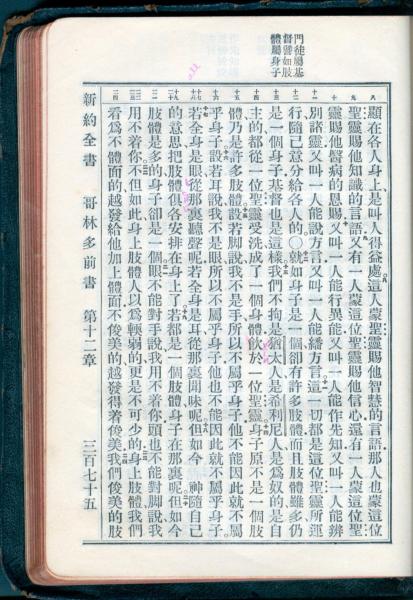 門徒屬基
督譬如肢
體屬身子
顯在各人身上是叫人得益處這人蒙聖靈賜他智慧的言語那人也蒙這位
聖靈賜他知識的言語又有一人蒙這位聖靈賜他信心還有一人蒙這位聖
靈賜他醫病的恩賜又叫一人能行異能又叫一人能作先知又叫一人能辨
別諸靈又叫一人能說方言又叫一人能繙方言這一切都是這位聖靈所運
行隨己意分給各人的〇就如身子是一個卻有許多肢體而且肢體雖多仍
是一個身子基督也是這樣我們不拘是猶太人是希利尼人是爲奴的是自
主的都從一位聖靈受洗成了一個身體飲於一位聖靈身子原不是一個肢
體乃是許多肢體設若脚說我不是手所以不屬乎身子他不能因此就不屬
乎身子設若耳說我不是眼所以不屬乎身子他也不能因此就不屬乎身子
若全身是眼從那裏聽聲呢若全身是耳從那裏聞味呢但如今 神隨自己
的意思把肢體俱各安排在身上了若都是一個肢體身子在那裏呢但如今
肢體是多的身子卻是一個眼不能對手說我用不着你頭也不能對脚說我
用不着你不但如此身上肢體人以爲輭弱的更是不可少的身上肢體我們
看爲不體面的越發給他加上體面不俊美的越發得着俊美我們俊美的肢
新約全書 哥林多前書 第十二章 三百七十五